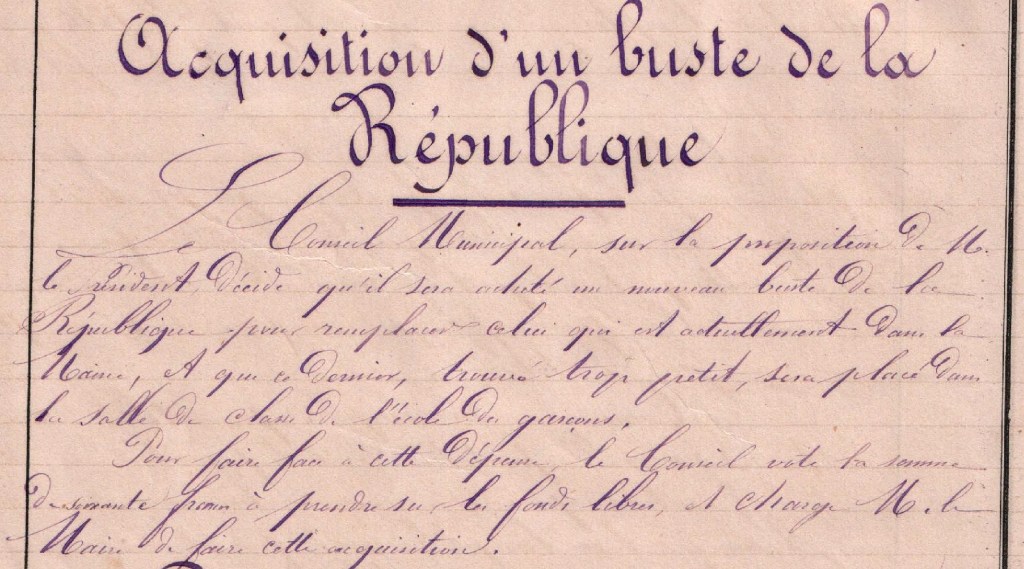 Acquisition d'un buste de la
République
Le Conseil Municipal, sur la proposition de M.
le Président, décide qu'il sera acheté un nouveau buste de la
République pour remplacer celui qui est actuellement dans la
Mairie, et que ce dernier, trouvé trop petit, sera placé dans
la salle de classe de l'école des garçons.
Pour faire face à cette dépense, le Conseil vote la somme
de soixante francs à prendre sur les fonds libres, et charge M. le
Maire de faire cette acquisition.